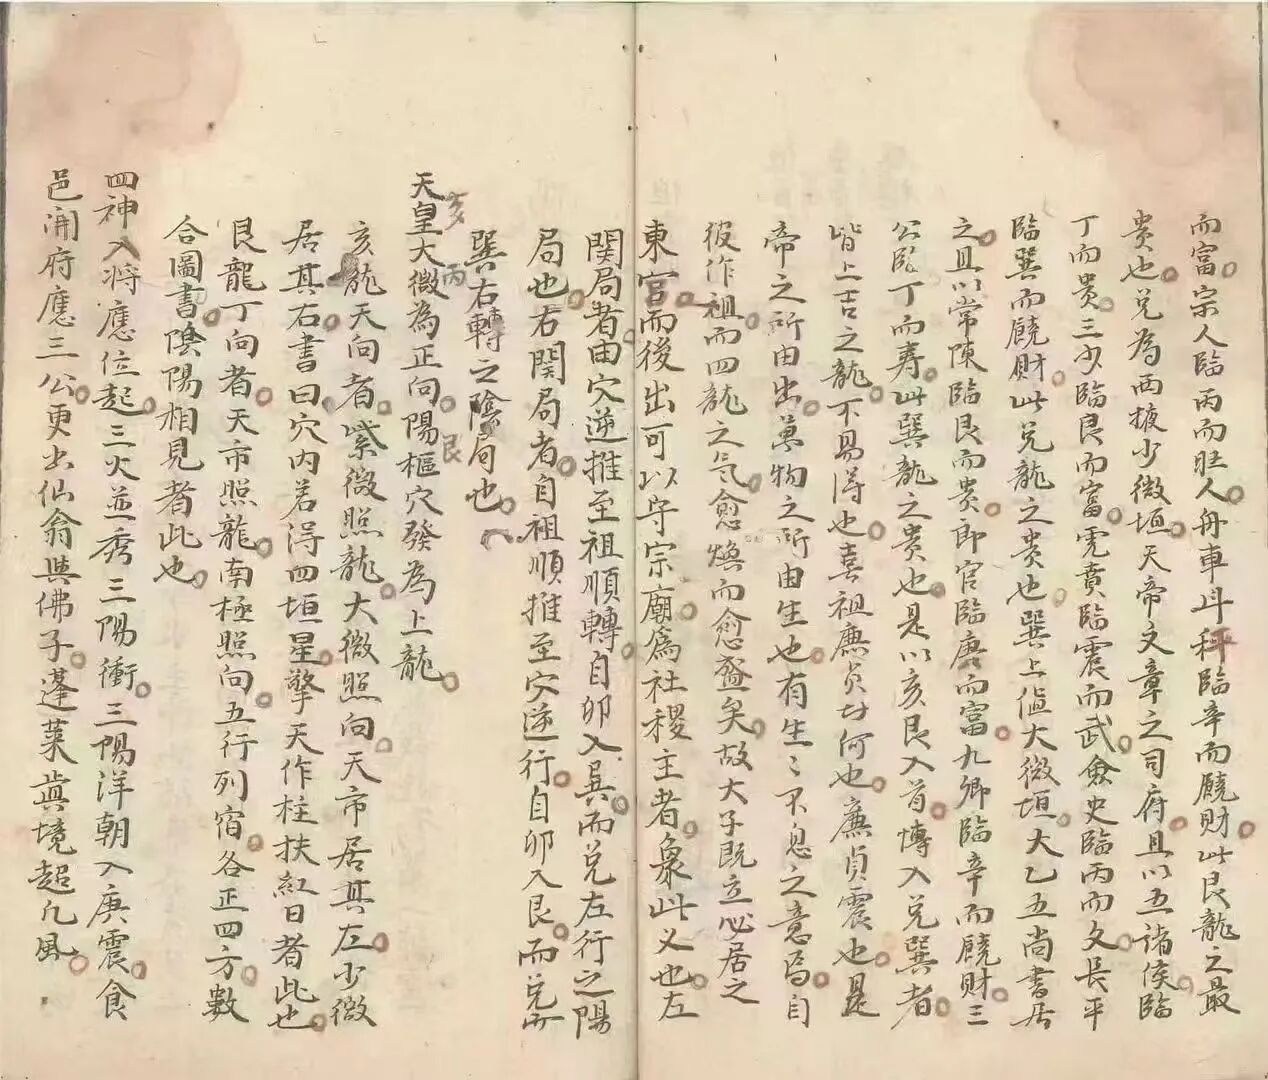 而富宗人臨丙而旺人舟車斗秤臨辛而饒財此艮龍之最
貴也兌為西掖少微垣天帝文章之司府且以五諸侯臨
丁而貴三少臨艮而富虎賁臨震而武僉史臨丙而文長平
臨巽而饒財此兌龍之貴也巽上值大微垣大乙五尚書居
之且以常陳臨艮而貴郎官臨庚而富九卿臨辛而饒財三
公臨丁而壽此巽龍之貴也是以亥艮入首博入兌巽者
皆上吉之龍不易得也喜祖廉貞者何也廉貞震也是
帝之所由出萬物之所由生也有生生不息之意焉自
彼作祖而四龍之气愈煥而愈盛矣故大子既立必居之
東宮而後出可以守宗廟為社稷主者象此义也左
関局者由穴逆推至祖順轉自卯入巽而兌左行之陽
局也右関局者自祖順推至穴逆行自卯入艮而兌
巽右轉之陰局也
天皇大微為正向陽樞穴發為上龍
亥丙艮
亥龍天向者紫微照龍大微照向天市居其左少微
居其右書曰穴内若得四垣星擎天作柱扶紅日者此也
艮龍丁向者天市照龍南極照向五行列宿各正四方數
合圖書陰陽相見者此也
四神入將應位起三火並秀三陽衝三陽洋朝入庚震食
邑開府應三公更出仙翁與佛子蓬萊真境超凡風